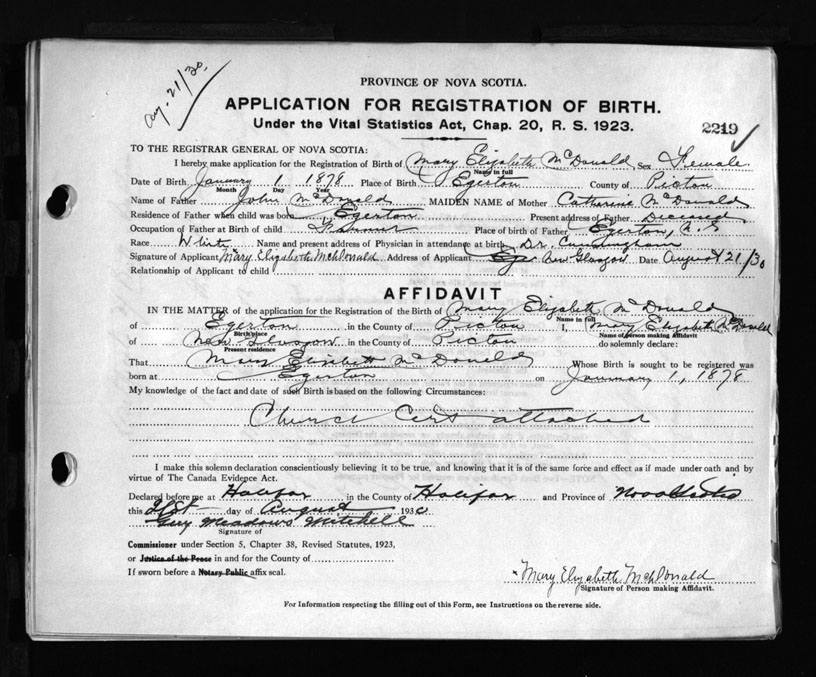 Aug. 21/30.
PROVINCE OF NOVA SCOTIA.
APPLICATION FOR REGISTRATION OF BIRTH.
Under the Vital Statistics Act, Chap. 20, R. S. 1923.
2219
TO THE REGISTRAR GENERAL OF NOVA SCOTIA:
I hereby make application for the Registration of Birth of Mary Elizabeth McDonald Sex Female
Name in full
Date of Birth January 1 1878 Place of Birth Egerton County of Pictou
Month Day Year
Name of Father John McDonald MAIDEN NAME of Mother Catharine McDonald
Residence of Father when child was born Egerton Present address of Father Deceased
Occupation of Father at Birth of child Place of birth of Father Egerton, N.S
Race White Name and present address of Physician in attendance at birth Dr. Cunningham
Signature of Applicant Mary Elizabeth McDonald Address of Applicant New Glasgow Date August 21/30
Relationship of Applicant to child
AFFIDAVIT
IN THE MATTER of the application for the Registration of Birth of Mary Elizabeth McDonald
Name in full
of Egerton in the County of Pictou I, Mary Elizabeth McDonald
Birthplace Name of person making Affidavit
of New Glasgow in the County of Pictou do solemnly declare:
Present residence
That Mary Elizabeth McDonald Whose Birth is sought to be registered was
born at Egerton on January 1, 1878
My knowledge of the fact and date of such Birth is based on the following Circumstances:
Church Cert attached
I make this solemn declaration conscientiously believing it to be true, and knowing that it is of the same force and effect as if made under oath and by
virtue of The Canada Evidence Act.
Declared before me at Halifax in the County of Halifax and Province of Nova Scotia
this 21st day of August 1930
Guy Meadows Mitchell
Signature of
Commissioner under Section 5, Chapter 38, Revised Statutes, 1923,
or Justice of the Peace in and for the County of
If sworn before a Notary Public affix seal.
Mary Elizabeth McDonald
Signature of Person making Affidavit.
For Information respecting the filling out of this Form, see Instructions on the reverse side.